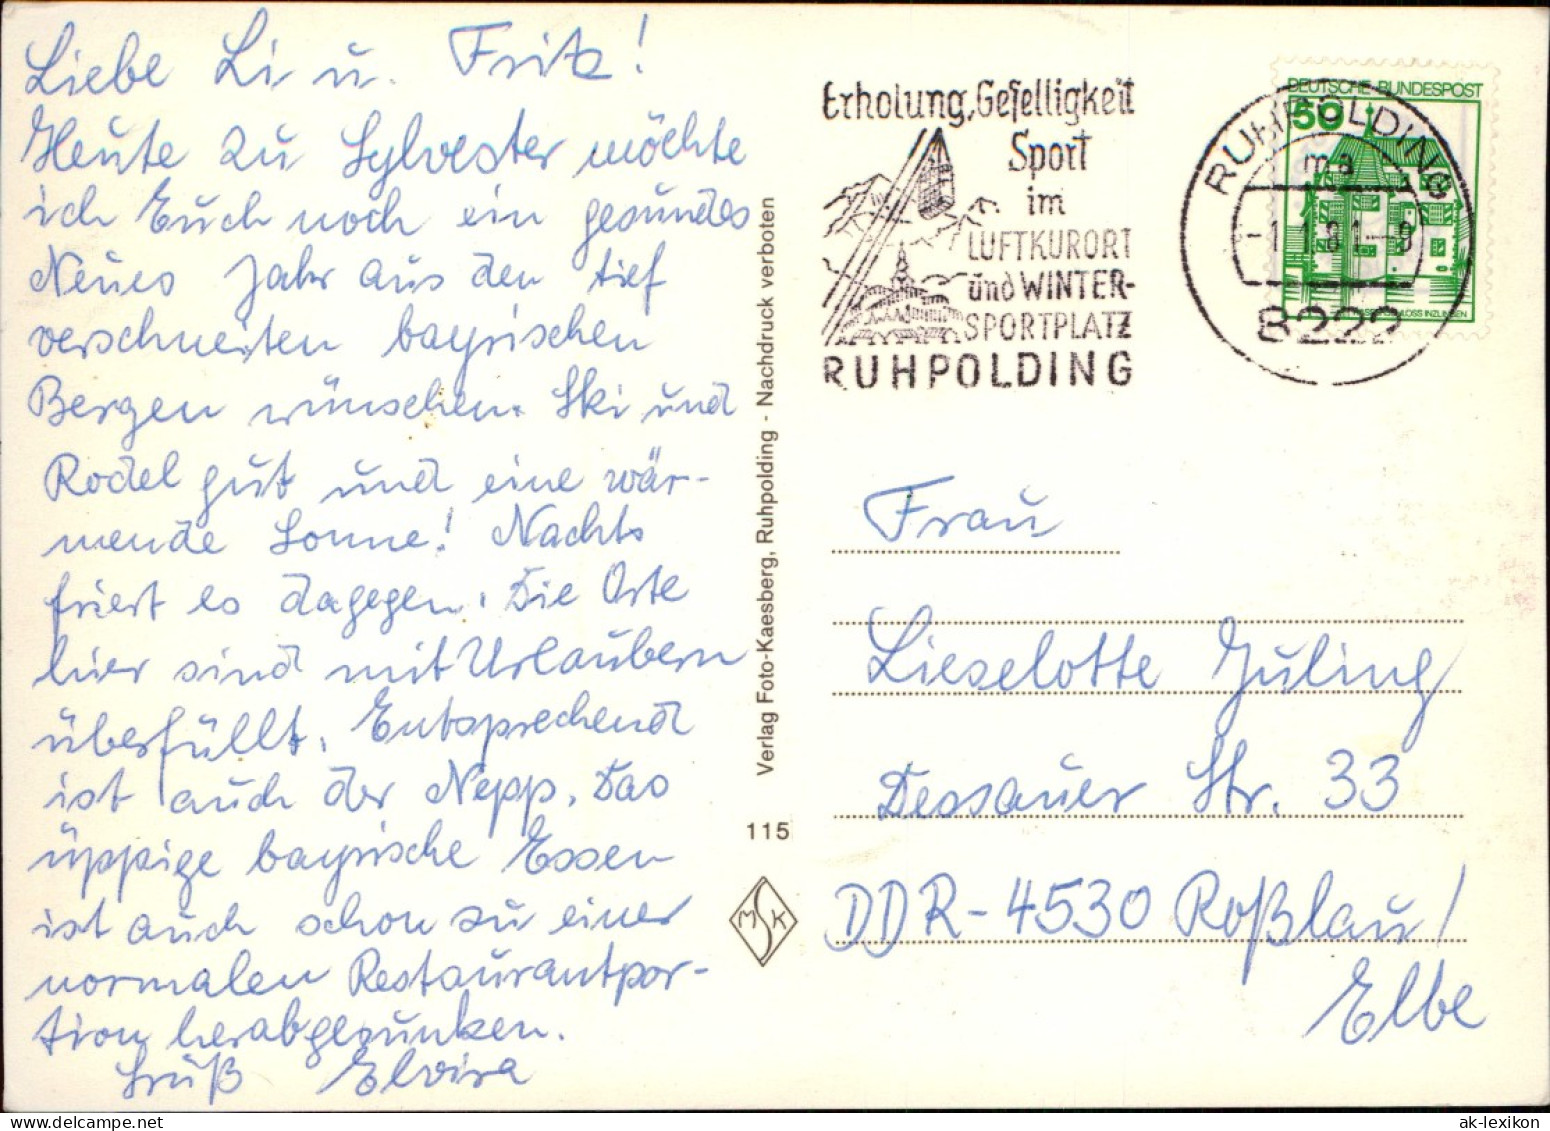 Liebe Li u. Fritz!
Heute zu Sylvester möchte
ich Euch noch ein gesundes
Neues Jahr aus den tief
verschneiten bayrischen
Bergen wünschen. Ski und
Rodel gut und eine wär-
mende Sonne! Nachts
friert es dagegen. Die Orte
hier sind mit Urlaubern
überfüllt. Entsprechend
ist auch der Nepp. Das
üppige bayrische Essen
ist auch schon zu einer
normalen Restaurantpor-
tion herabgesunken.
Gruß Elvira
Verlag Foto-Kaesberg, Ruhpolding - Nachdruck verboten
115
MSK
Erholung, Geselligkeit
Sport
im
LUFTKURORT
und WINTER-
SPORTPLATZ
RUHPOLDING
DEUTSCHE BUNDESPOST
50
SCHLOSS INZLINGEN
RUHPOLDING
ma
-1.1.81--9
8222
Frau
Lieselotte Juling
Dessauer Str. 33
DDR-4530 Roßlau/
Elbe
ak-lexikon